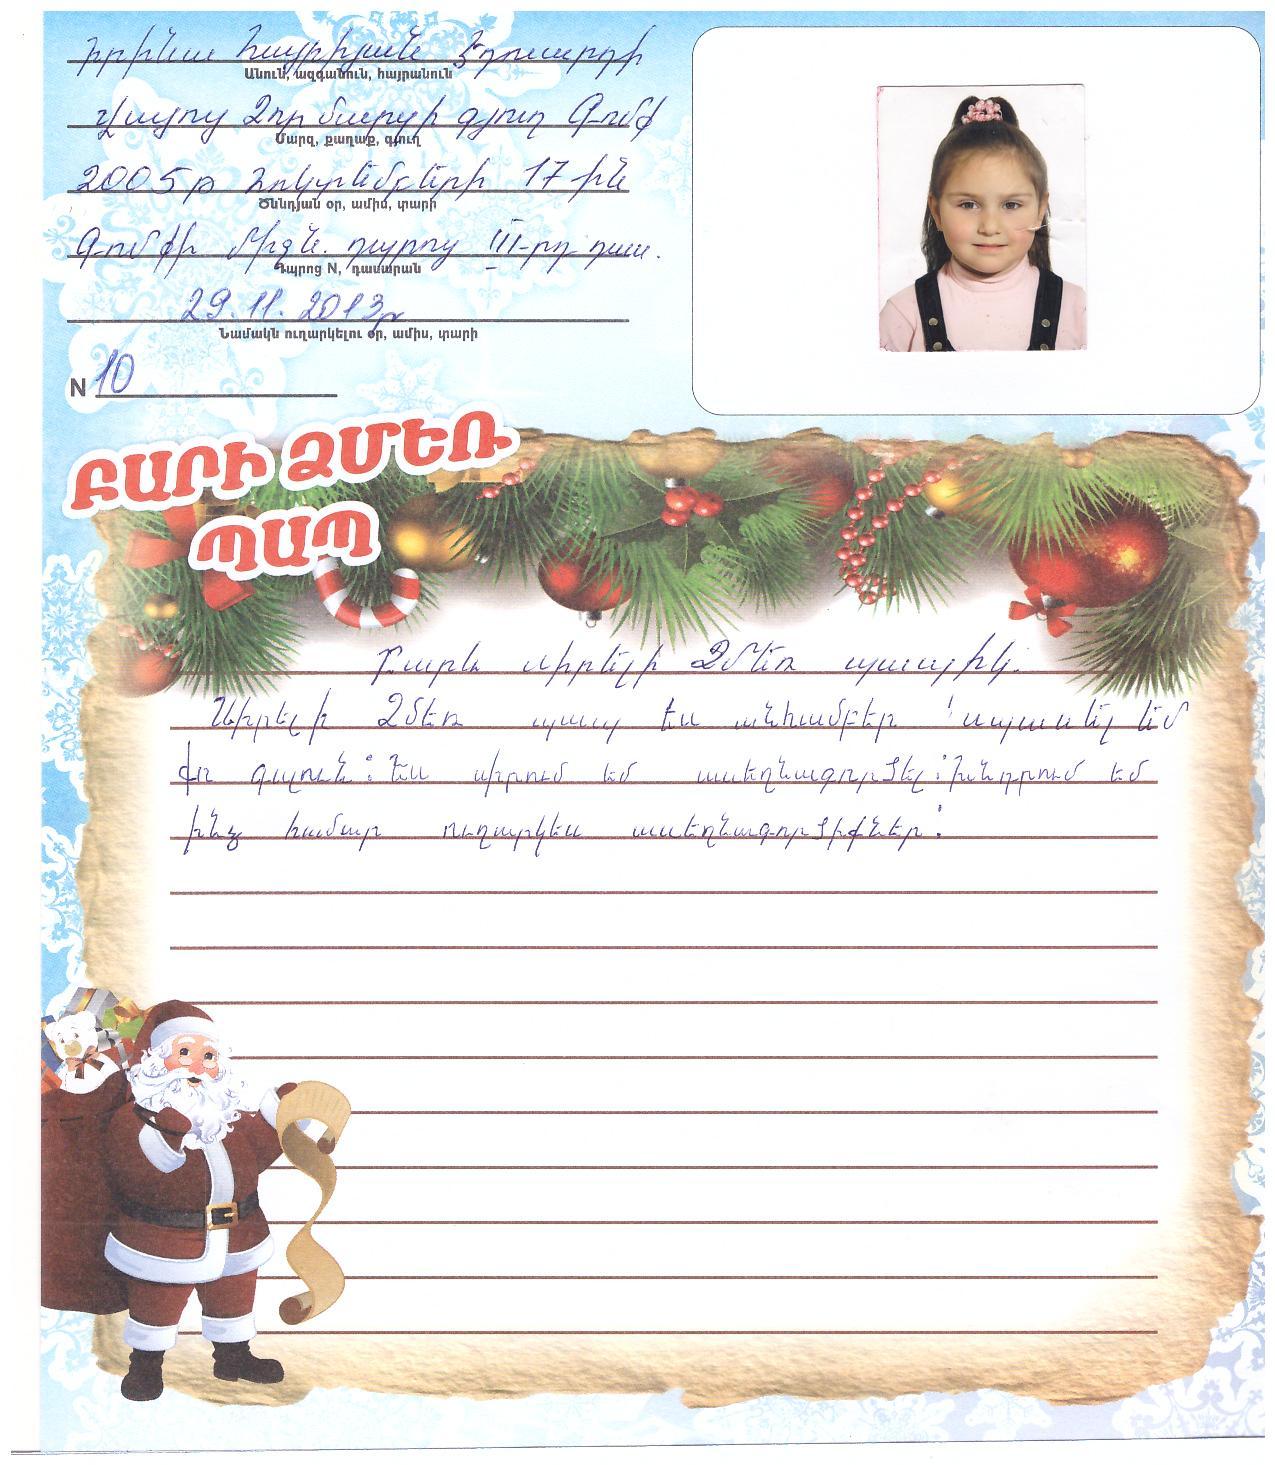 Իրինա Հայրիյան Էդուարդի
Անուն, ազգանուն, հայրանուն
Վայոց Ձոր մարզի գյուղ Գոմք
Մարզ, քաղաք, գյուղ
2005թ հոկտեմբերի 17-ին
Ծննդյան օր, ամիս, տարի
Գոմքի միջն. դպրոց III-րդ դաս.
Դպրոց N, դասարան
29.11.2013թ
Նամակն ուղարկելու օր, ամիս, տարի
N 10
ԲԱՐԻ ՁՄԵՌ
ՊԱՊ
Բարև սիրելի Ձմեռ պապիկ.
Սիրելի Ձմեռ պապ ես անհամբեր սպասել եմ
քո գալուն: Ես սիրում եմ ասեղնագործել: Խնդրում եմ
ինձ համար ուղարկես ասեղնագործիքներ: